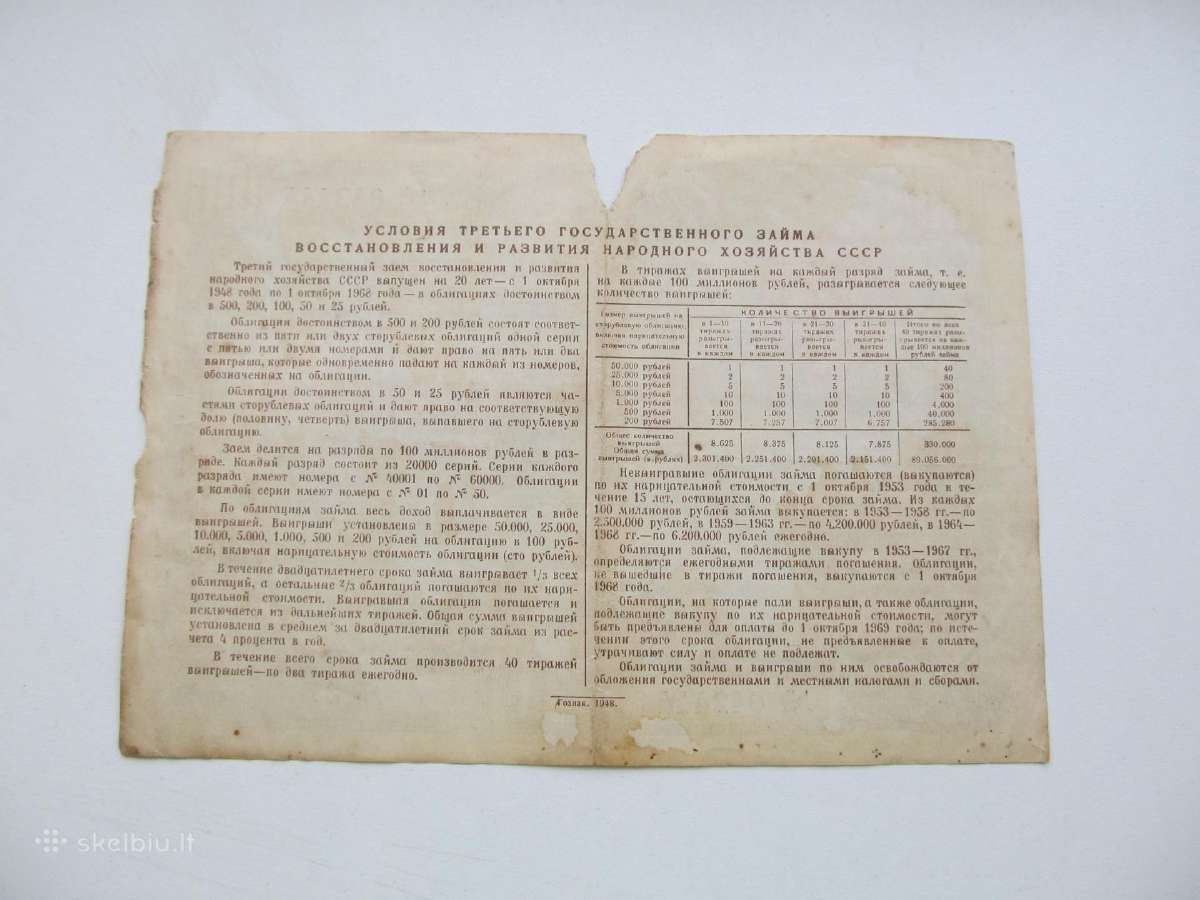 УСЛОВИЯ ТРЕТЬЕГО ГОСУДАРСТВЕННОГО ЗАЙМА
ВОССТАНОВЛЕНИЯ И РАЗВИТИЯ НАРОДНОГО ХОЗЯЙСТВА СССР
Третий государственный заем восстановления и развития
народного хозяйства СССР выпущен на 20 лет — с 1 октября
1948 года по 1 октября 1968 года — в облигациях достоинством
в 500, 200, 100, 50 и 25 рублей.
Облигации достоинством в 500 и 200 рублей состоят соответ-
ственно из пяти или двух сторублевых облигаций одной серии
с пятью или двумя номерами и дают право на пять или два
выигрыша, которые одновременно падают на каждый из номеров,
обозначенных на облигации.
Облигации достоинством в 50 и 25 рублей являются ча-
стями сторублевых облигаций и дают право на соответствующую
долю (половину, четверть) выигрыша, выпавшего на сторублевую
облигацию.
Заем делится на разряды по 100 миллионов рублей в раз-
ряде. Каждый разряд состоит из 20000 серий. Серии каждого
разряда имеют номера с № 40001 по № 60000. Облигации
в каждой серии имеют номера с № 01 по № 50.
По облигациям займа весь доход выплачивается в виде
выигрышей. Выигрыши установлены в размере 50.000, 25.000,
10.000, 5.000, 1.000, 500 и 200 рублей на облигацию в 100 руб-
лей, включая нарицательную стоимость облигации (сто рублей).
В течение двадцатилетнего срока займа выигрывает 1/3 всех
облигаций, а остальные 2/3 облигаций погашаются по их нари-
цательной стоимости. Выигравшая облигация погашается и
исключается из дальнейших тиражей. Общая сумма выигрышей
установлена в среднем за двадцатилетний срок займа из рас-
чета 4 процента в год.
В течение всего срока займа производится 40 тиражей
выигрышей — по два тиража ежегодно.
В тиражах выигрышей на каждый разряд займа, т. е.
на каждые 100 миллионов рублей, разыгрывается следующее
количество выигрышей:
Размер выигрышей на
сторублевую облигацию,
включая нарицательную
стоимость облигации
КОЛИЧЕСТВО ВЫИГРЫШЕЙ
в 1—10
тиражах
разыгры-
вается
в каждом
в 11—20
тиражах
разыгры-
вается
в каждом
в 21—30
тиражах
разыгры-
вается
в каждом
в 31—40
тиражах
разыгры-
вается
в каждом
Итого во всех
40 тиражах разы-
грывается на каж-
дые 100 миллионов
рублей займа
50.000 рублей 1 1 1 1 40
25.000 рублей 2 2 2 2 80
10.000 рублей 5 5 5 5 200
5.000 рублей 10 10 10 10 400
1.000 рублей 100 100 100 100 4.000
500 рублей 1.000 1.000 1.000 1.000 40.000
200 рублей 7.507 7.257 7.007 6.757 285.280
Общее количество
выигрышей 8.625 8.375 8.125 7.875 330.000
Общая сумма
выигрышей (в рублях) 2.301.400 2.251.400 2.201.400 2.151.400 89.056.000
Невыигравшие облигации займа погашаются (выкупаются)
по их нарицательной стоимости с 1 октября 1953 года в те-
чение 15 лет, остающихся до конца срока займа. Из каждых
100 миллионов рублей займа выкупается: в 1953—1958 гг.—по
2.500.000 рублей, в 1959—1963 гг.—по 4.200.000 рублей, в 1964—
1968 гг.—по 6.200.000 рублей ежегодно.
Облигации займа, подлежащие выкупу в 1953—1967 гг.,
определяются ежегодными тиражами погашения. Облигации,
не вышедшие в тиражи погашения, выкупаются с 1 октября
1968 года.
Облигации, на которые пали выигрыши, а также облигации,
подлежащие выкупу по их нарицательной стоимости, могут
быть предъявлены для оплаты до 1 октября 1969 года; по исте-
чении этого срока облигации, не предъявленные к оплате,
утрачивают силу и оплате не подлежат.
Облигации займа и выигрыши по ним освобождаются от
обложения государственными и местными налогами и сборами.
Гознак. 1948.
skelbiu.lt